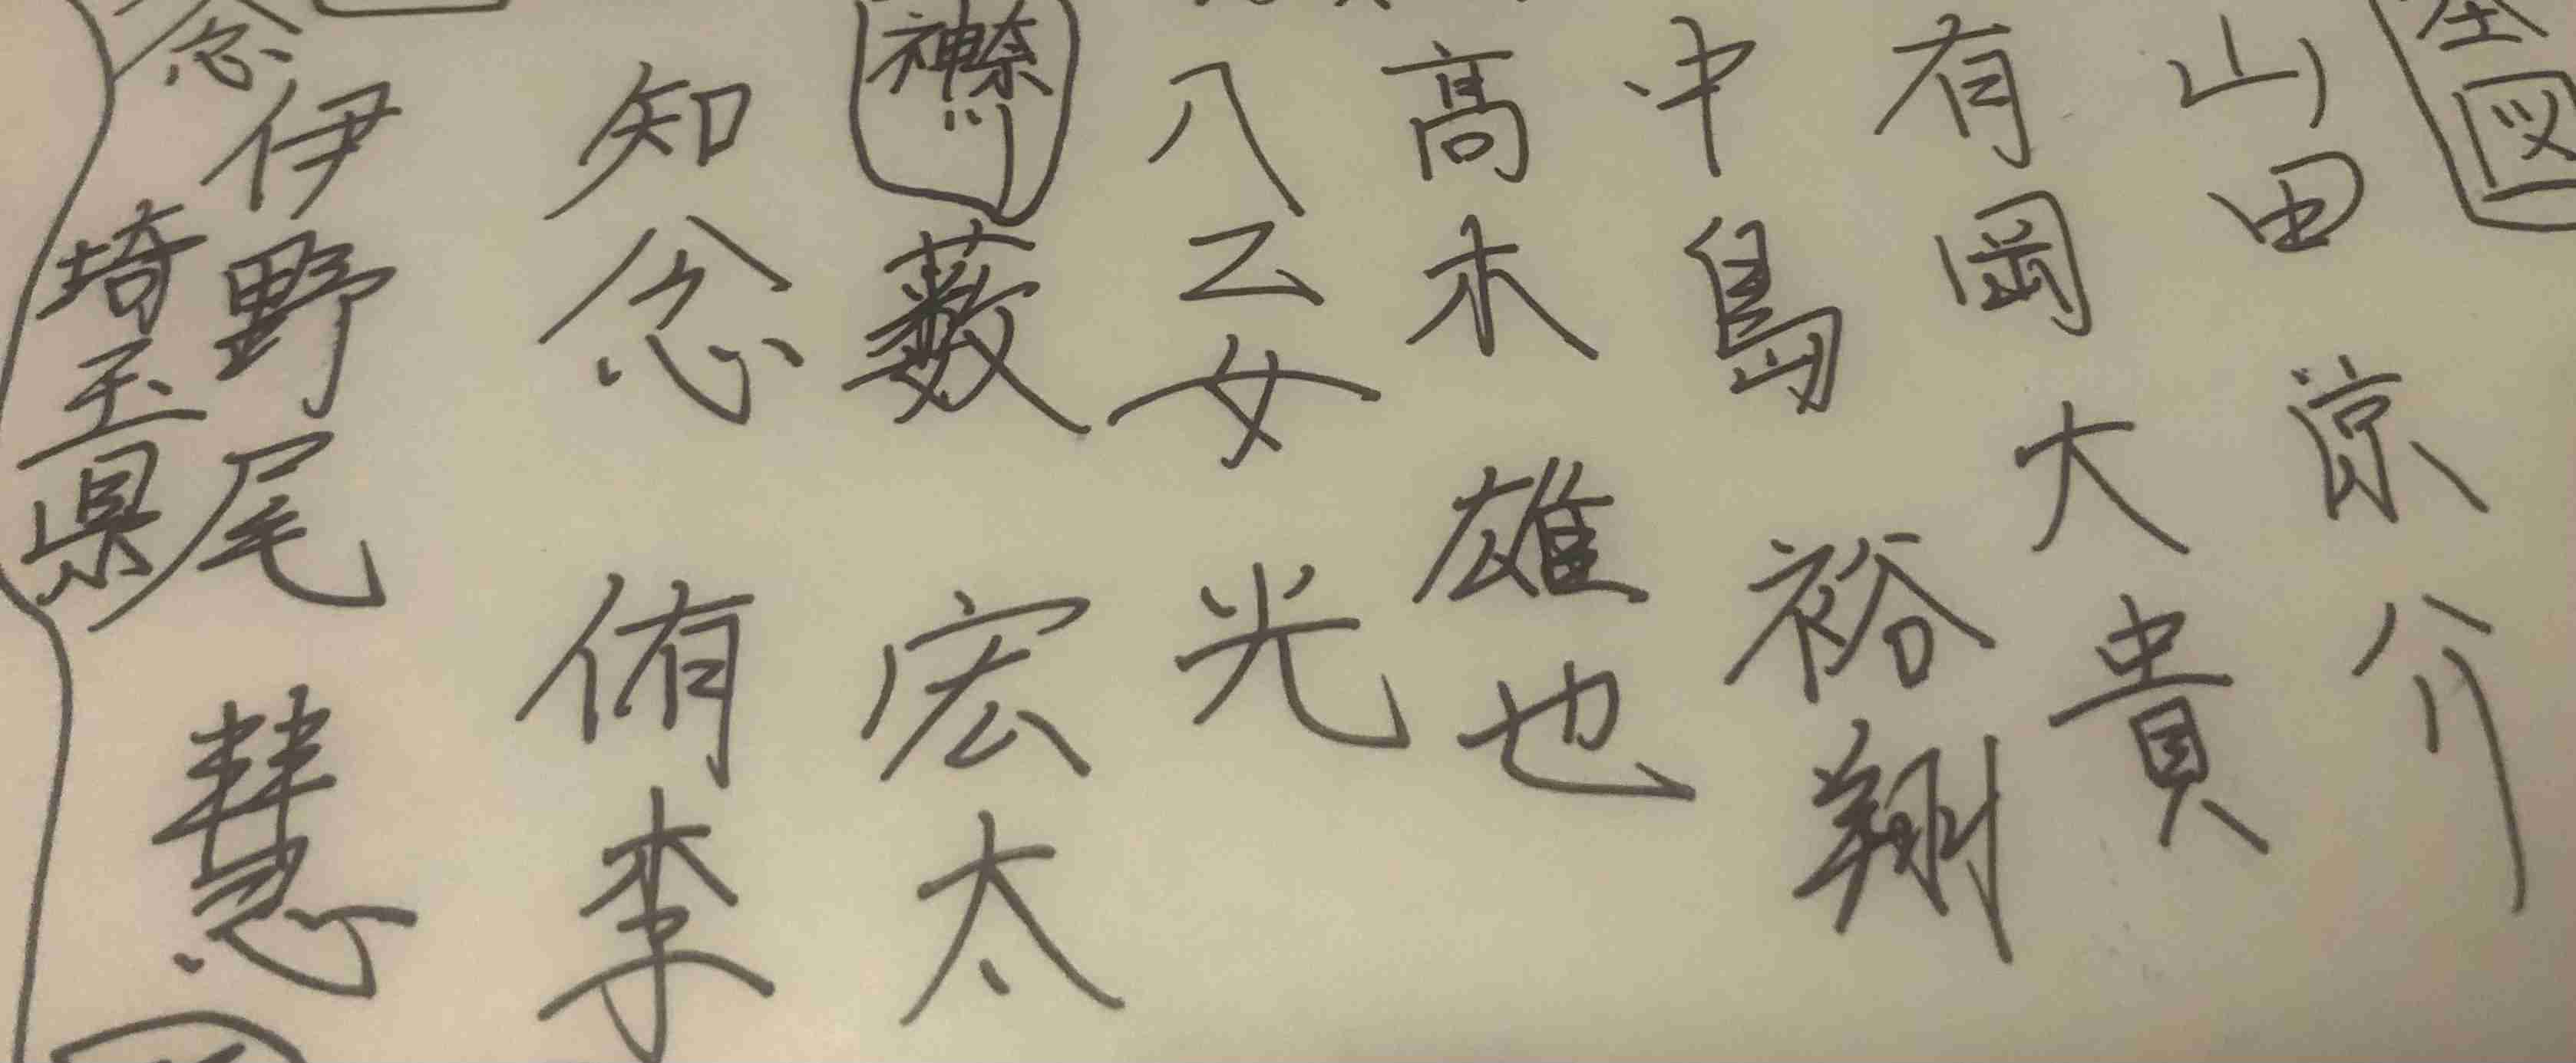 図
山田涼介
有岡大貴
中島裕翔
高木雄也
八乙女光
神奈川
薮宏太
知念侑李
念
伊野尾慧
埼玉県